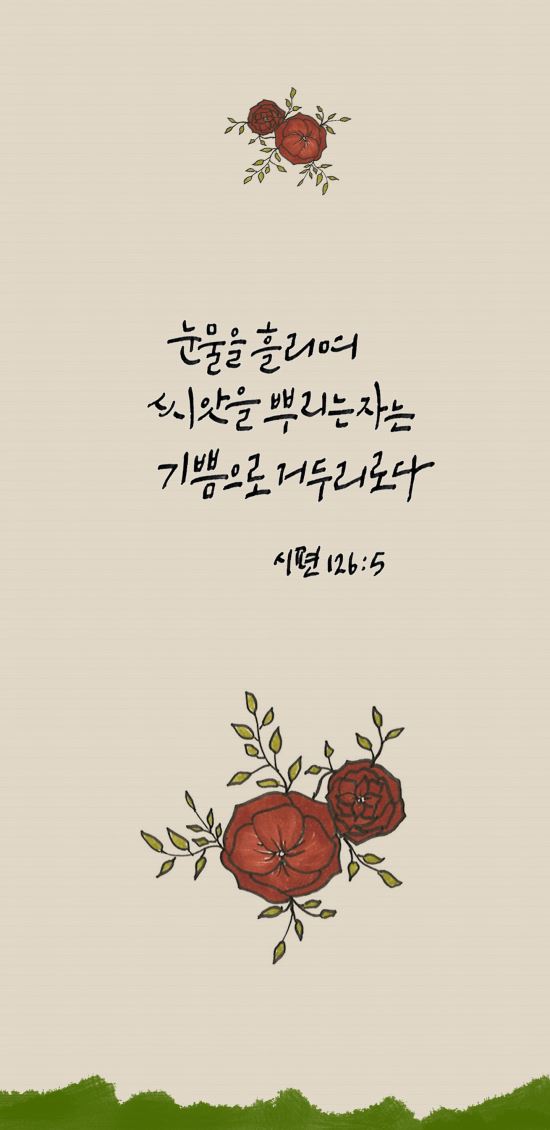 눈물을 흘리며
씨앗을 뿌리는 자는
기쁨으로 거두리로다
시편 126:5